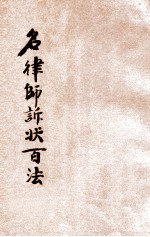 名律師訴状百法